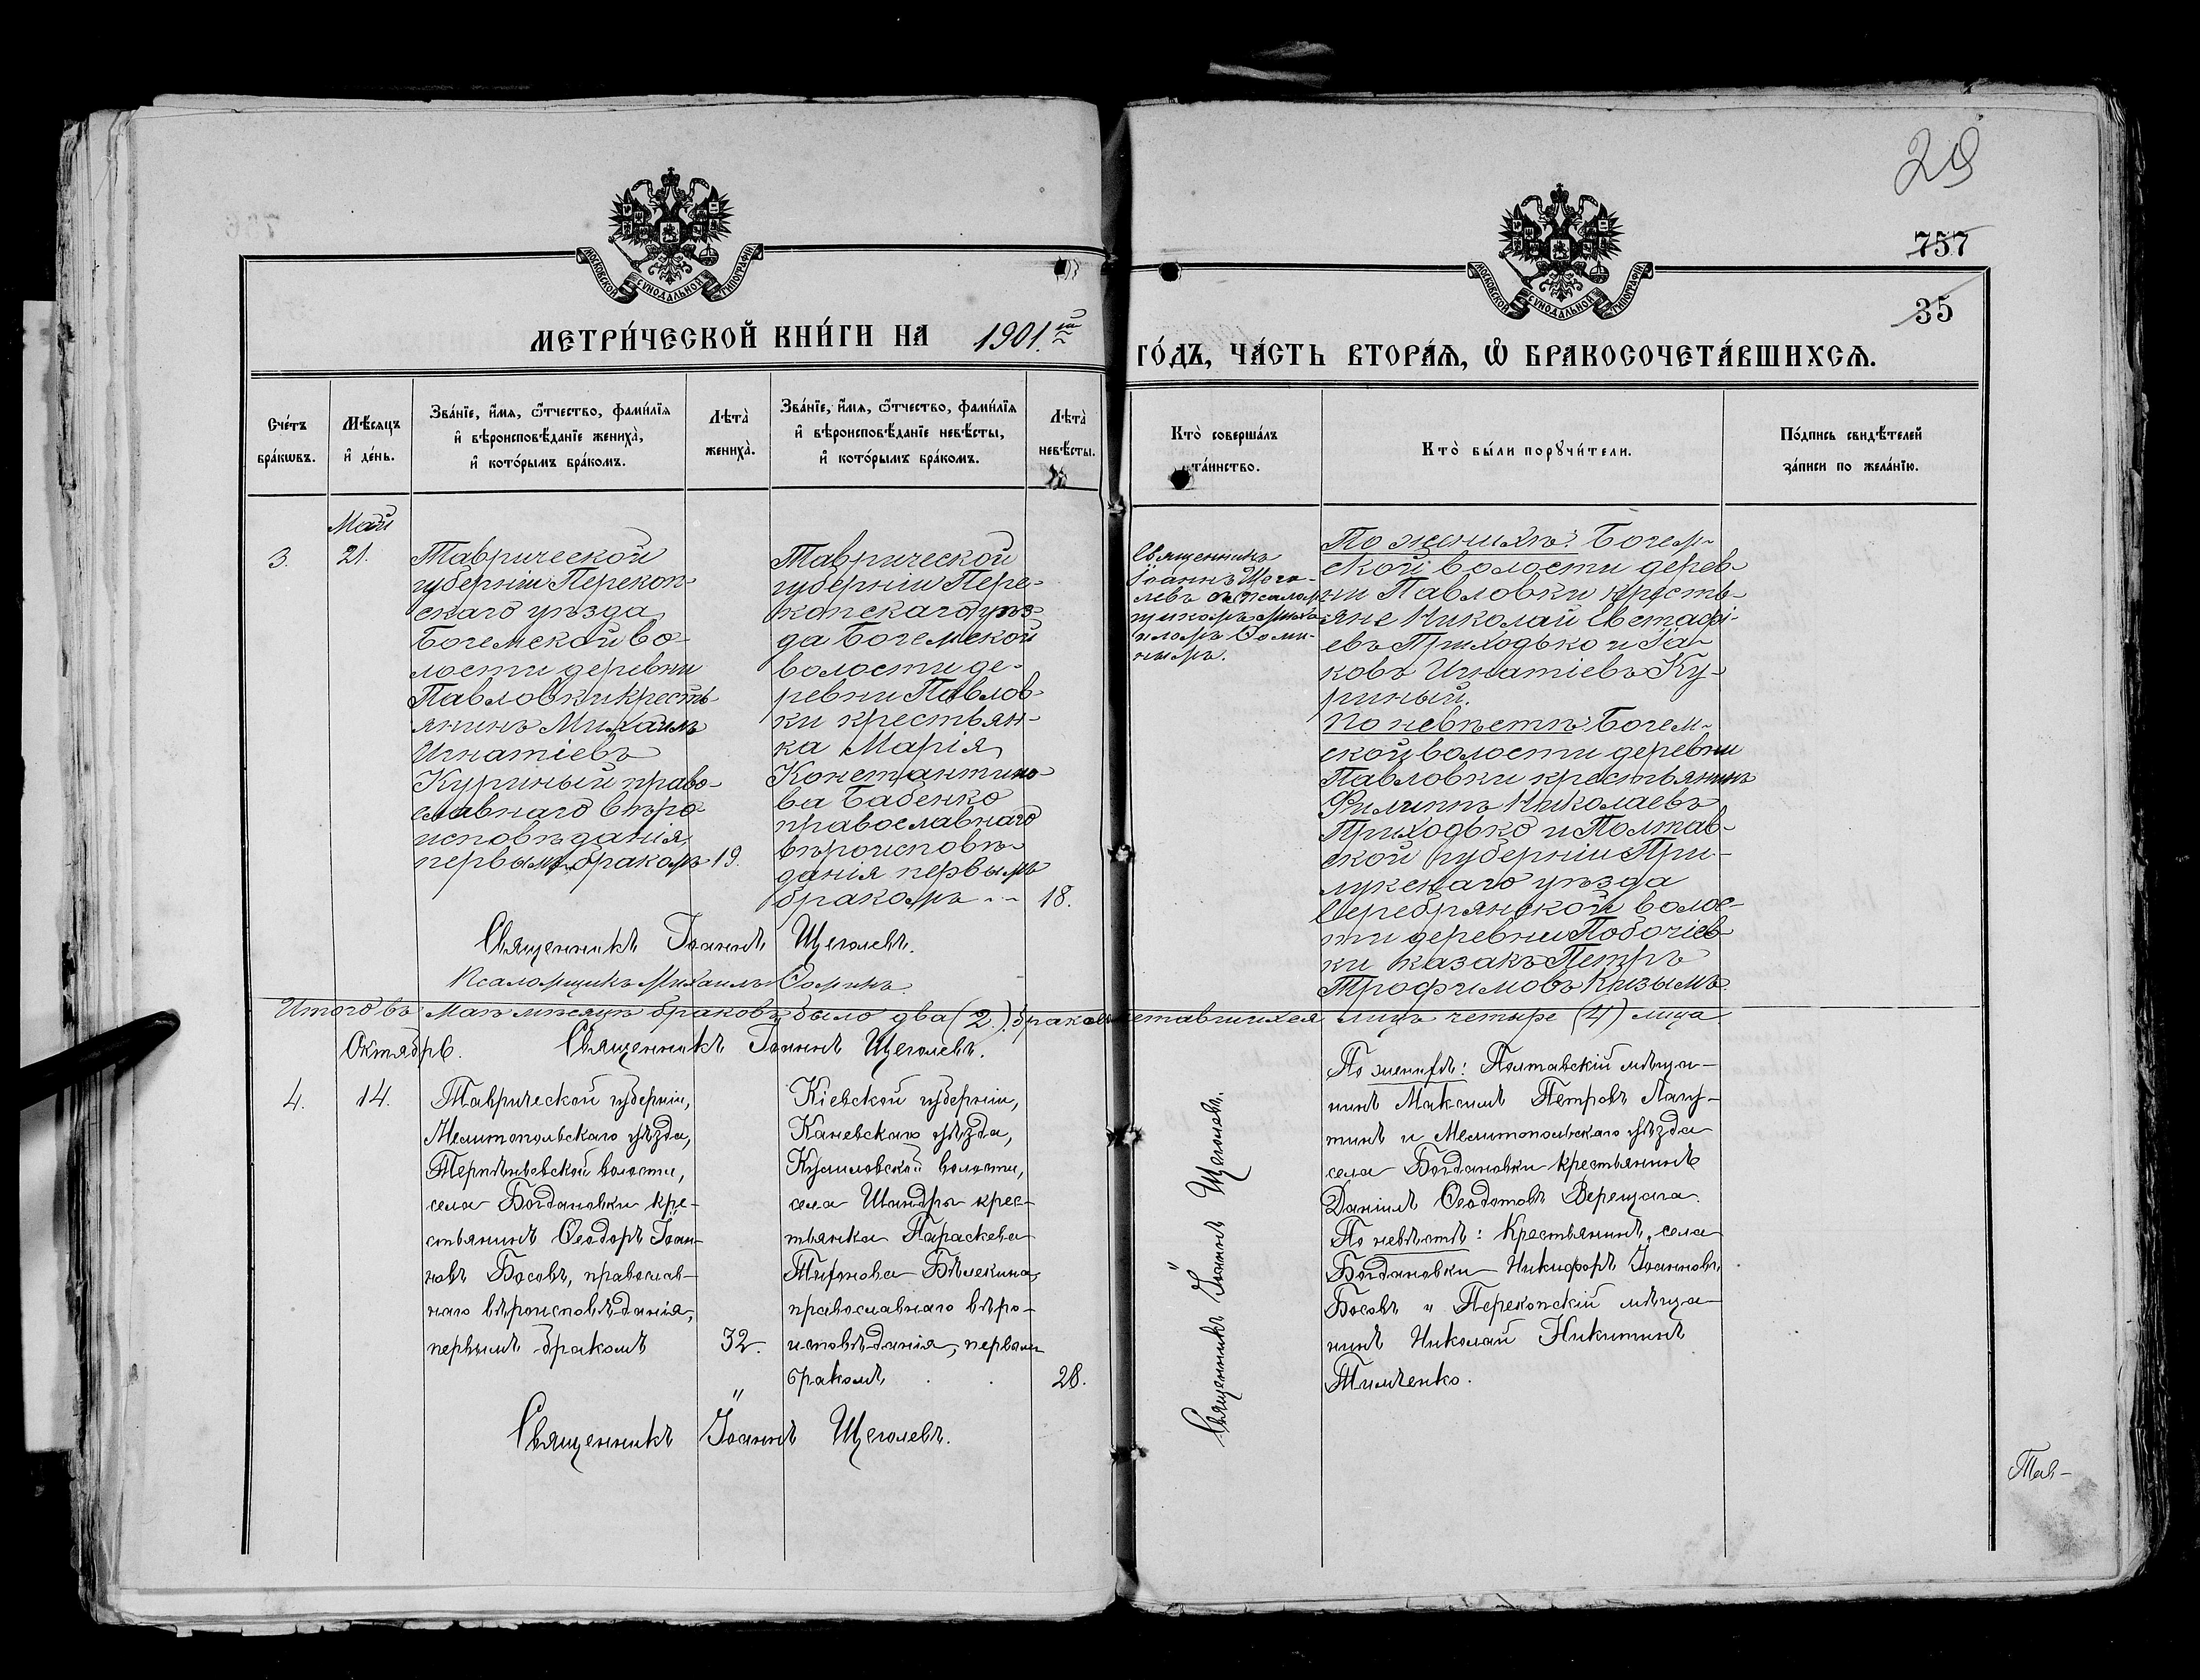 29
757
35
МОСКОВСКОЙ СУНОДАЛЬНОЙ ТИПОГРАФІИ
МОСКОВСКОЙ СУНОДАЛЬНОЙ ТИПОГРАФІИ
МЕТРИ́ЧЕСКОЙ КНИ́ГИ НА 1901.й
ГО́ДЪ, ЧА́СТЬ ВТОРА́Я, Ѡ БРАКОСОЧЕТА́ВШИХСЯ.
Сче́тъ
бра́кѡвъ.
Мѣ́сяцъ
и де́нь.
Зва́нїе, и́мя, ѻ́тчество, фами́лїя
и вѣроисповѣ́данїе жениха̀,
и кото́рымъ бра́комъ.
Лѣта̀
жениха̀.
Зва́нїе, и́мя, ѻ́тчество, фами́лїя
и вѣроисповѣ́данїе невѣ́сты,
и кото́рымъ бра́комъ.
Лѣта̀
невѣ́сты.
Кто̀ соверша́лъ
та́инство.
Кто̀ бы́ли порꙋчи́тели.
По́дпись свидѣ́телей
за́писи по жела́нїю.
Май
3.
21.
Таврической
губерніи Перекоп-
скаго уѣзда
Богемской во-
лости деревни
Павловки кресть-
янинъ Михаилъ
Игнатіевъ
Куриный право-
славнаго вѣро-
исповѣданія,
первымъ бракомъ
19.
Таврической
губерніи Пере-
копскаго уѣз-
да Богемской
волости де-
ревни Павлов-
ки крестьян-
ка Марія
Константино-
ва Бабенко
православнаго
вѣроисповѣ-
данія первымъ
бракомъ
18.
Священникъ
Іоаннъ Щего-
левъ съ псалом-
щикомъ Миха-
иломъ Ѳоми-
нымъ.
По женихѣ: Богем-
ской волости дерев-
ни Павловки кресть-
яне Николай Евстафі-
евъ Приходько и Іа-
ковъ Игнатіевъ Ку-
риный.
По невѣстѣ: Богем-
ской волости деревни
Павловки крестьянинъ
Филиппъ Николаевъ
Приходько и Полтав-
ской губерніи При-
лукскаго уѣзда
Серебрянской волос-
ти деревни Побочіев-
ки казакъ Петръ
Трофимовъ Кизымъ.
Священникъ Іоаннъ Щеголевъ.
Псаломщикъ Михаилъ Ѳоминъ.
Итого въ Маѣ мѣсяцѣ браковъ было два (2.), бракосочетавшихся лицъ четыре (4) лица.
Октябрь.
Священникъ Іоаннъ Щеголевъ.
4.
14.
Таврической губерніи,
Мелитопольскаго уѣзда,
Терпѣньевской волости,
села Богдановки кре-
стьянинъ Ѳеодоръ Іоан-
новъ Босовъ, православ-
наго вѣроисповѣданія,
первымъ бракомъ
32.
Кіевской губерніи,
Каневскаго уѣзда,
волости,
села Шандры крес-
тьянка Параскева
Тихонова Бѣлекина,
православнаго вѣро-
исповѣданія, первымъ
бракомъ,
28.
Священникъ Іоаннъ Щеголевъ.
По женихѣ: Полтавскій мѣща-
нинъ Максимъ Петровъ Лагу-
тинъ и Мелитопольскаго уѣзда
села Богдановки крестьянинъ
Даніилъ Ѳеодотовъ Верещага.
По невѣстѣ: Крестьянинъ села
Богдановки Никифоръ Іоанновъ
Босовъ и Перекопскій мѣща-
нинъ Николай Никитинъ
Тимченко.
Священникъ Іоаннъ Щеголевъ.
Тав-